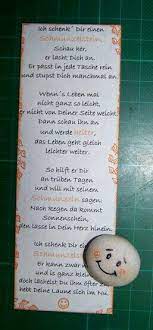 Ich schenk´ Dir einen
Schmunzelstein.
Schau her,
er lacht Dich an.
Er passt in jede Tasche rein
und stupst Dich manchmal an.
Wenn´s Leben mal
nicht ganz so leicht,
er nicht von Deiner Seite weicht.
Dann schau ihn an
und werde heiter,
das Leben geht gleich
leichter weiter.
So hilft er Dir
an trüben Tagen
und will mit seinem
Schmunzeln sagen:
Nach Regen da kommt
Sonnenschein,
den lasse in Dein Herz hinein.
Ich schenk´ Dir ei
Schmunzelste
Er kann zwar n
und is ganz klei
doch lächelst Du ihn öfter
hebt Deine Laune sich im Nu.